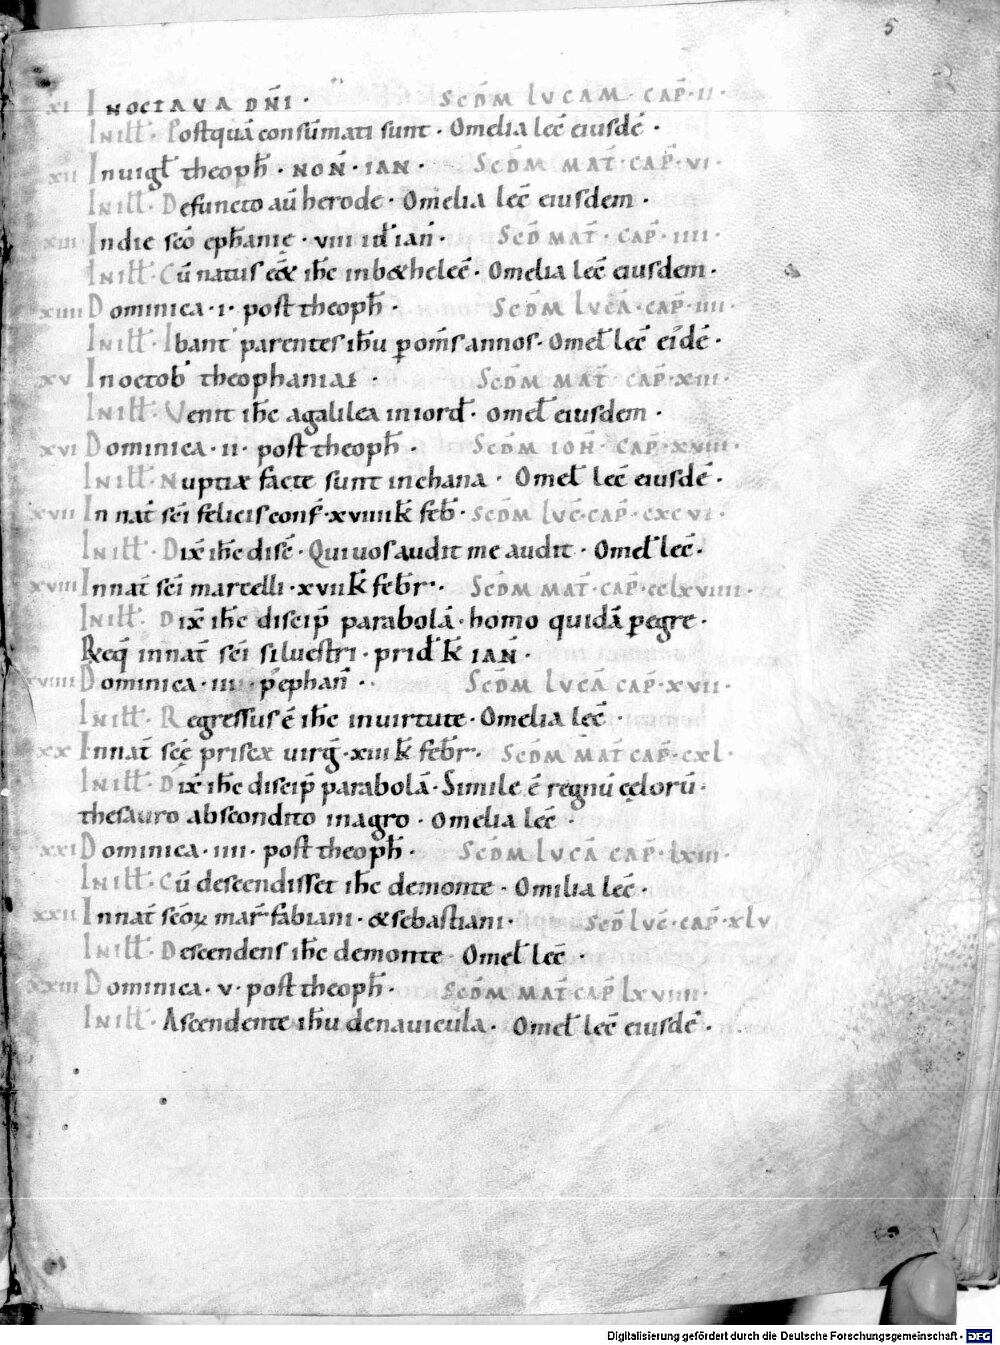 5
xi In octava dñi · Scdm Lucam · cap̄ · ii ·
In illt̄ · Postquā consūmati sunt · Omelia lec̄ eiusdē ·
xii In uigl̄ theoph̄ · non̄ · ian · Scdm mat̄ · cap̄ · vi ·
In illt̄ · Defuncto aū herode · Omelia lec̄ eiusdem ·
xiii In die sc̄o eph̄anię · viii id̄ ian̄ · Scd̄ mat̄ · cap̄ · iiii ·
In illt̄ · Cū natus eēt ih̄c in bethleē · Omelia lec̄ eiusdem ·
xiiii Dominica · i · post theoph̄ · Scdm Lucā · cap̄ · iiii ·
In illt̄ · Ibant parentes ih̄u p om̄s annos · Omel̄ lec̄ eidē ·
xv In octob̄ theophaniae · Scdm mat̄ cap̄ · xiii ·
In illt̄ · Venit ih̄c a galilea in iord̄ · omel̄ eiusdem ·
xvi Dominica · ii · post theoph̄ · Scdm ioh̄ · cap̄ · xviii ·
In illt̄ · Nuptiæ facte sunt in chana · Omel̄ lec̄ eiusdē ·
xvii In nat̄ sc̄i felicis conf̄ · xviiii k̄ feb̄ · Scdm luc̄ · cap̄ · cxcvi ·
In illt̄ · Dix̄ ih̄c disc̄ · Qui uos audit me audit · Omel̄ lec̄ ·
xviii In nat̄ sc̄i marcelli · xvii k̄ feb̄r · Scdm mat̄ · cap̄ · cclxviiii ·
In illt̄ · Dix̄ ih̄c discip̄ parabolā · homo quidā pegre ·
Req̄ in nat̄ sc̄i siluestri · prid̄ k̄ ian̄ ·
xviiii Dominica · iii · p̄ ephan̄ · Scdm Lucā cap̄ · xvii ·
In illt̄ · Regressus ē ih̄c in uirtute · Omelia lec̄ ·
xx In nat̄ sc̄ę priscæ uirḡ · xiii k̄ feb̄r · Scdm mat̄ cap̄ · cxl ·
In illt̄ · Dix̄ ih̄c discip̄ parabolā · Simile ē regnū cęlorū ·
thesauro abscondito in agro · Omelia lec̄ ·
xxi Dominica · iiii · post theoph̄ · Scdm Lucā cap̄ · lxiii ·
In illt̄ · Cū descendisset ih̄c de monte · Omilia lec̄ ·
xxii In nat̄ sc̄oꝝ mar̄ fabiani · & sebastiani · Scd̄ Luc̄ · cap̄ · xlv
In illt̄ · Descendens ih̄c de monte · Omel̄ lec̄ ·
xxiii Dominica · v · post theoph̄ · Scdm mat̄ cap̄ lxviiii ·
In illt̄ · Ascendente ih̄u de nauicula · Omel̄ lec̄ eiusdē ·
Digitalisierung gefördert durch die Deutsche Forschungsgemeinschaft - DFG